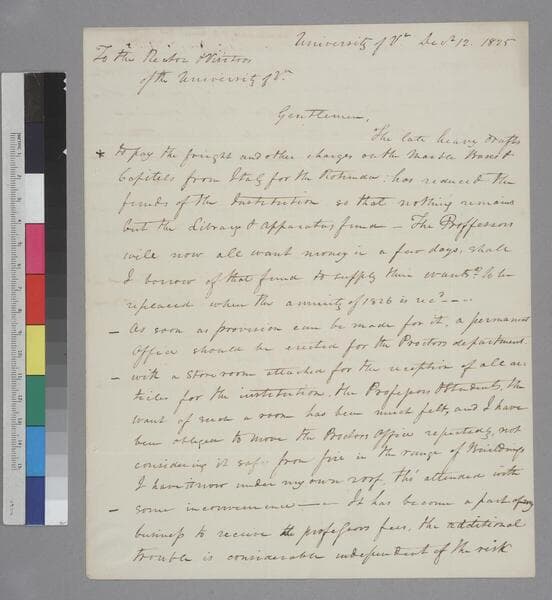 University of Va. Decr. 12. 1825
To the Rector & Visitors
of the University of Va.
Gentlemen,
The late heavy drafts
* to pay the freight and other charges on the Marble Bases &
Capitels from Italy for the Rotunda; has reduced the
funds of the Institution so that nothing remains
but the Library & Apparatus fund — The Proffessors
will now all want money in a few days, shall
I borrow of that fund to supply their wants? to be
replaced when the annuity of 1826 is recd. — . .
— As soon as provision can be made for it, a permanent
Office should be erected for the Proctors department.
— with a Storeroom attached for the reception of all ar
ticles for the institution, the Professors & Students, the
want of such a room has been much felt, and I have
been obliged to move the Proctors Office repeatedly, not
considering it safe from fire in the range of Buildings
I have it now under my own roof, tho' attended with
— some inconvenience — — It has become a part of my
business to receive the professors fees, the additional
trouble is considerable independent of the risk